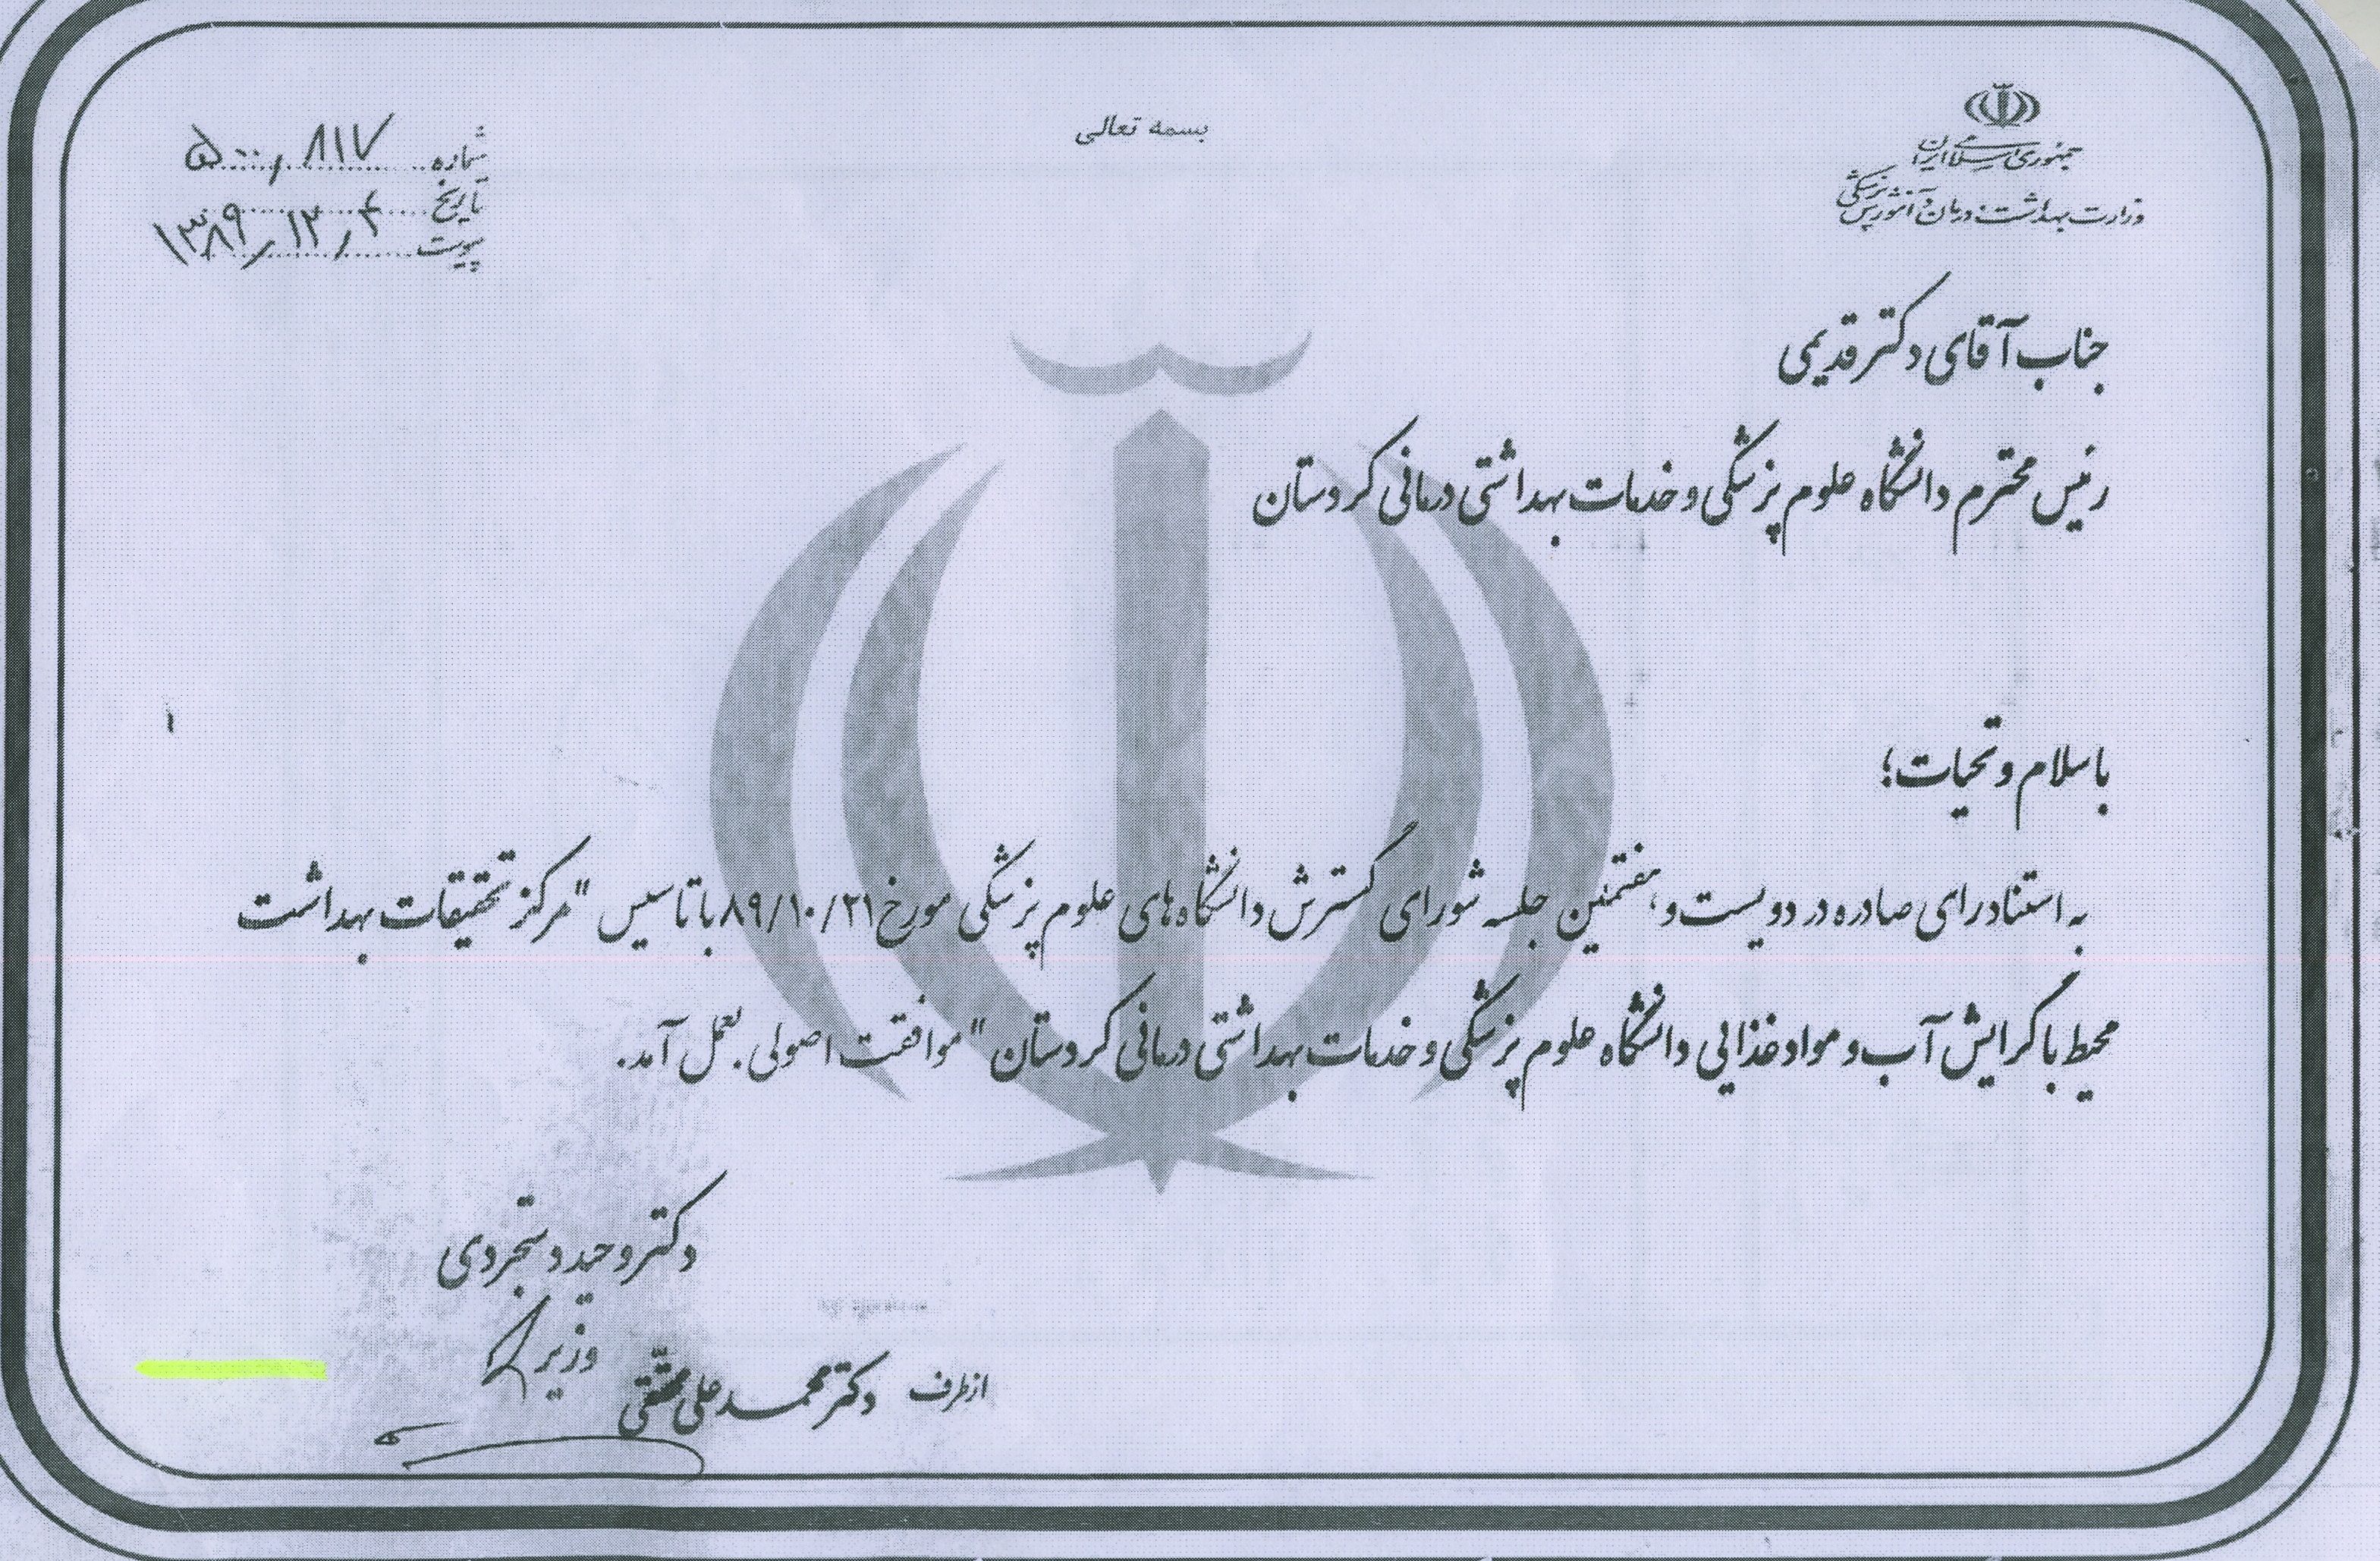 بسمه تعالی
جمهوری اسلامی ایران
وزارت بهداشت، درمان و آموزش پزشکی
شماره ۵۰۰٫۸۱۷
تاریخ ۱۳۸۹/۱۲/۴
پیوست
جناب آقای دکتر قدیمی
رئیس محترم دانشگاه علوم پزشکی و خدمات بهداشتی درمانی کردستان
با سلام و تحیات؛
به استناد رای صادره در دویست و هفتمین جلسه شورای گسترش دانشگاه های علوم پزشکی مورخ ۸۹/۱۰/۲۱ با تاسیس "مرکز تحقیقات بهداشت
محیط با گرایش آب و مواد غذایی دانشگاه علوم پزشکی و خدمات بهداشتی درمانی کردستان" موافقت اصولی بعمل آمد.
دکتر وحید دستجردی
وزیر
از طرف دکتر محمدعلی محققی